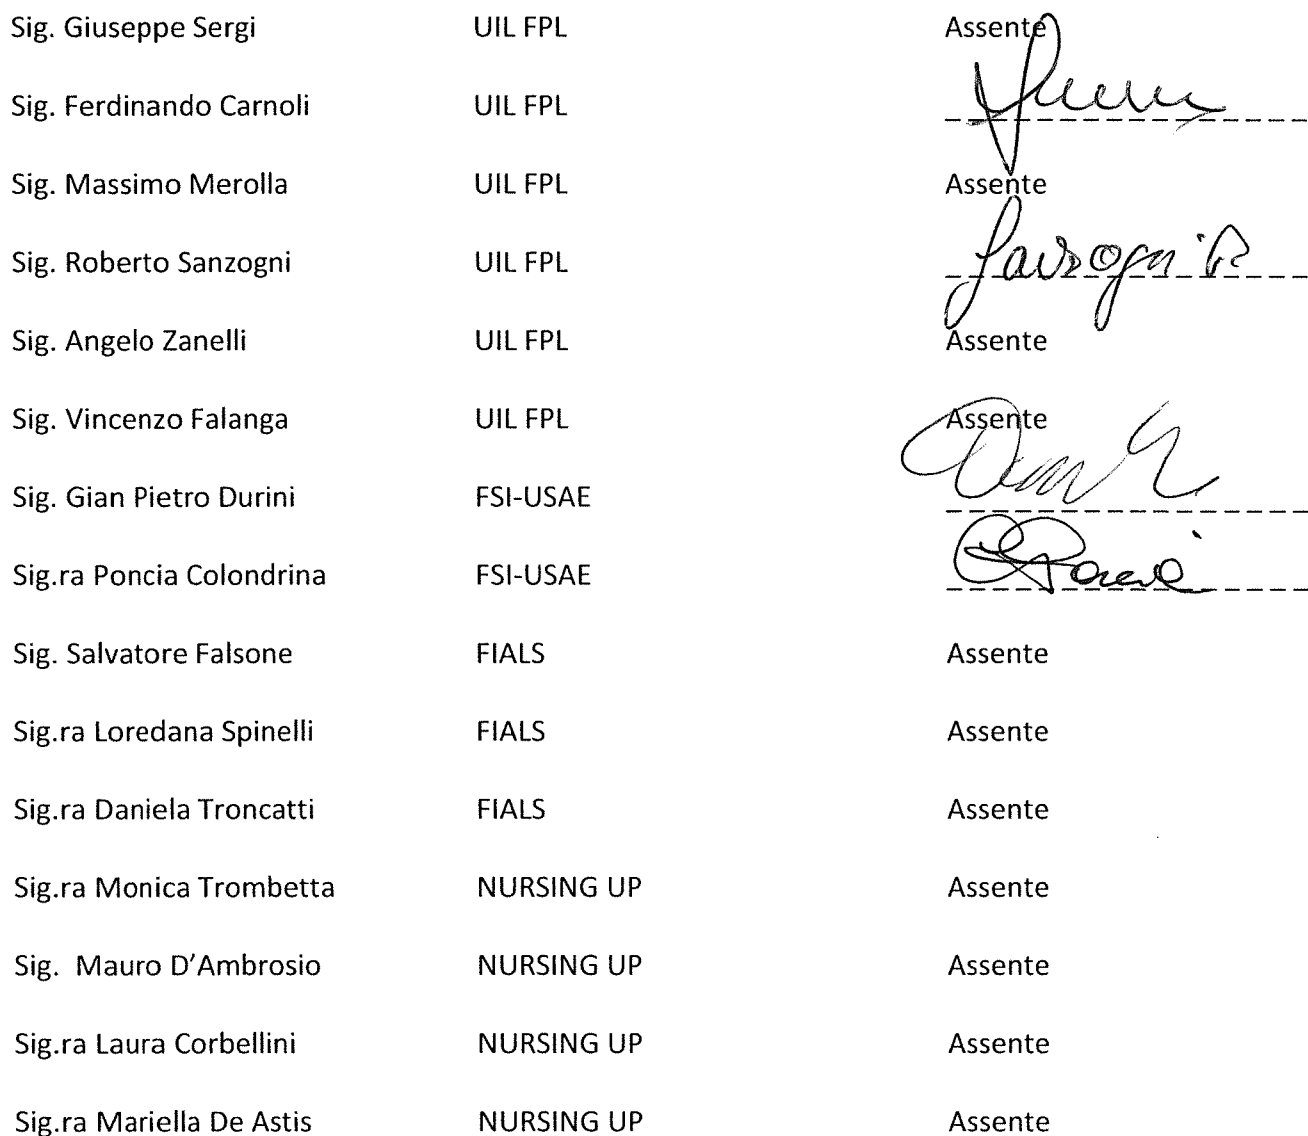 Sig. Giuseppe Sergi UIL FPL Assente
Sig. Ferdinando Carnoli UIL FPL
Sig. Massimo Merolla UIL FPL Assente
Sig. Roberto Sanzogni UIL FPL Sanzogni R
Sig. Angelo Zanelli UIL FPL Assente
Sig. Vincenzo Falanga UIL FPL Assente
Sig. Gian Pietro Durini FSI-USAE
Sig.ra Poncia Colondrina FSI-USAE
Sig. Salvatore Falsone FIALS Assente
Sig.ra Loredana Spinelli FIALS Assente
Sig.ra Daniela Troncatti FIALS Assente
Sig.ra Monica Trombetta NURSING UP Assente
Sig. Mauro D'Ambrosio NURSING UP Assente
Sig.ra Laura Corbellini NURSING UP Assente
Sig.ra Mariella De Astis NURSING UP Assente